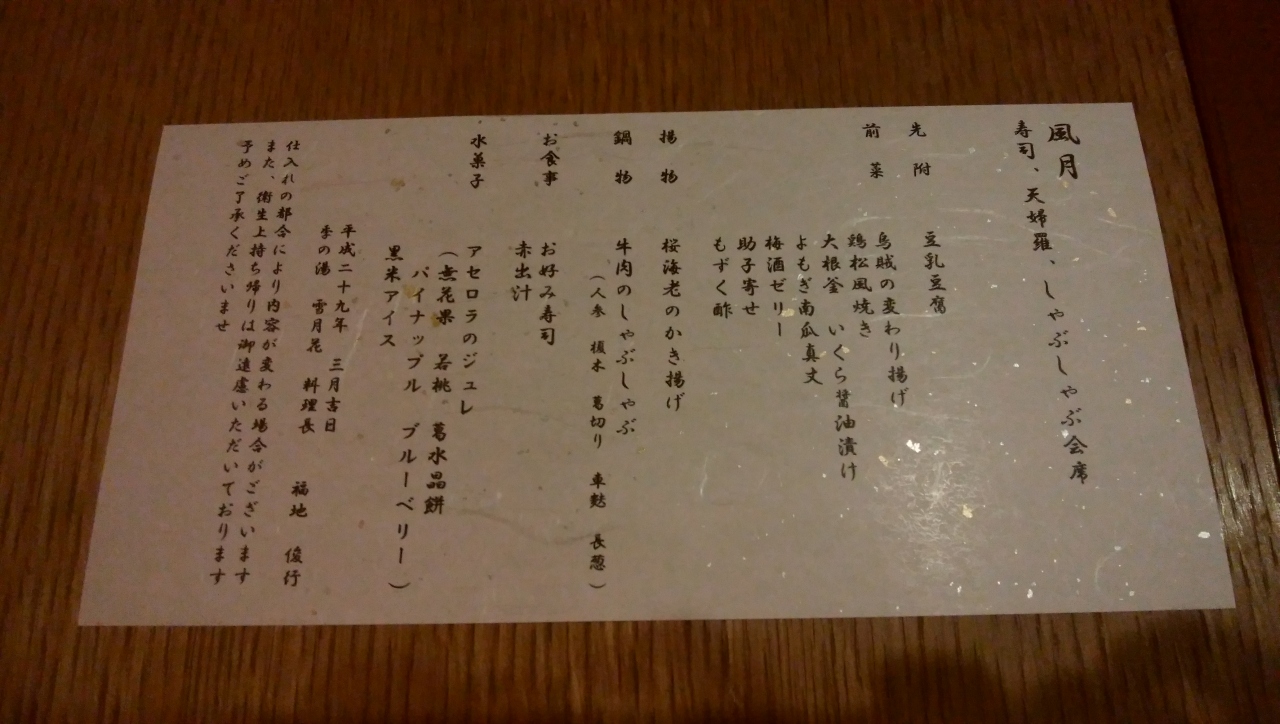 風月
寿司、天婦羅、しゃぶしゃぶ会席
先附
豆乳豆腐
前菜
烏賊の変わり揚げ
鶏松風焼き
大根釜 いくら醤油漬け
よもぎ南瓜真丈
梅酒ゼリー
助子寄せ
もずく酢
揚物
桜海老のかき揚げ
鍋物
牛肉のしゃぶしゃぶ
（人参 榎木 葛切り 車麩 長葱）
お食事
お好み寿司
赤出汁
水菓子
アセロラのジュレ
（無花果 若桃 葛水晶餅
パイナップル ブルーベリー）
黒米アイス
平成二十九年 三月吉日
季の湯 雪月花 料理長 福地 俊行
仕入れの都合により内容が変わる場合がございます
また、衛生上持ち帰りは御遠慮いただいております
予めご了承くださいませ